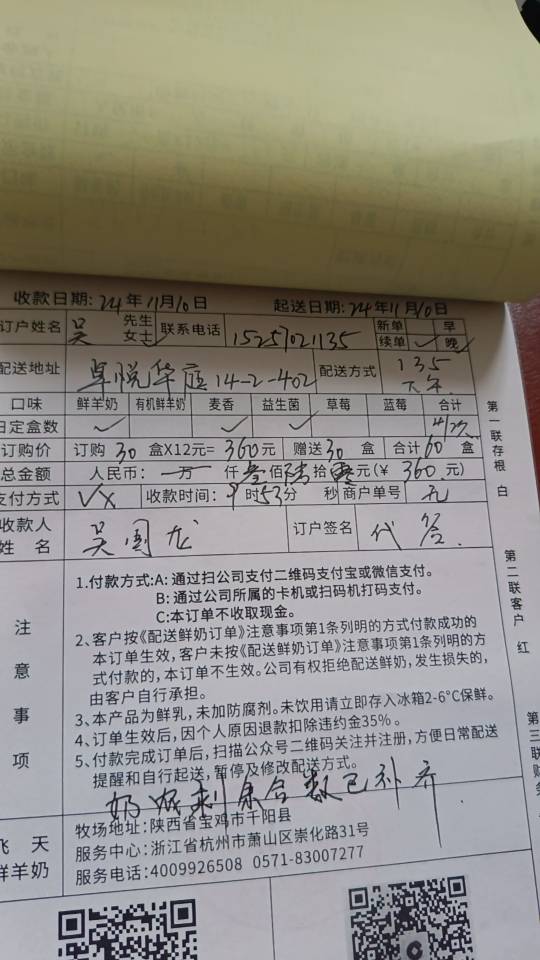 收款日期: 24年11月10日 起送日期: 24年11月10日
订户姓名 吴 先生 女士 联系电话 15257021135 新单 早
续单 ✓ 晚
配送地址 卓悦华庭14-2-402 配送方式 135 下午
口味 鲜羊奶 有机鲜羊奶 麦香 益生菌 草莓 蓝莓 合计
日定盒数 ✓ ✓ ✓
订购价 订购 30 盒X12元= 360元 赠送 30 盒 合计 60 盒
总金额 人民币: 万 仟 叁佰 陆拾 零元(¥ 360 元)
支付方式 VX 收款时间: 9时53分 秒 商户单号 无
收款人姓名 吴国龙 订户签名 代签
注意事项
1.付款方式:A: 通过扫公司支付二维码支付宝或微信支付。
B: 通过公司所属的卡机或扫码机打码支付。
C:本订单不收取现金。
2、客户按《配送鲜奶订单》注意事项第1条列明的方式付款成功的
本订单生效，客户未按《配送鲜奶订单》注意事项第1条列明的方
式付款的，本订单不生效。公司有权拒绝配送鲜奶，发生损失的，
由客户自行承担。
3、本产品为鲜乳，未加防腐剂。未饮用请立即存入冰箱2-6°C保鲜。
4、订单生效后，因个人原因退款扣除违约金35%。
5、付款完成订单后，扫描公众号二维码关注并注册，方便日常配送
提醒和自行起送，暂停及修改配送方式。
剩余合数已补齐
飞天鲜羊奶
牧场地址:陕西省宝鸡市千阳县
服务中心:浙江省杭州市萧山区崇化路31号
服务电话:4009926508 0571-83007277
第一联存根 白
第二联客户 红
第三联财务